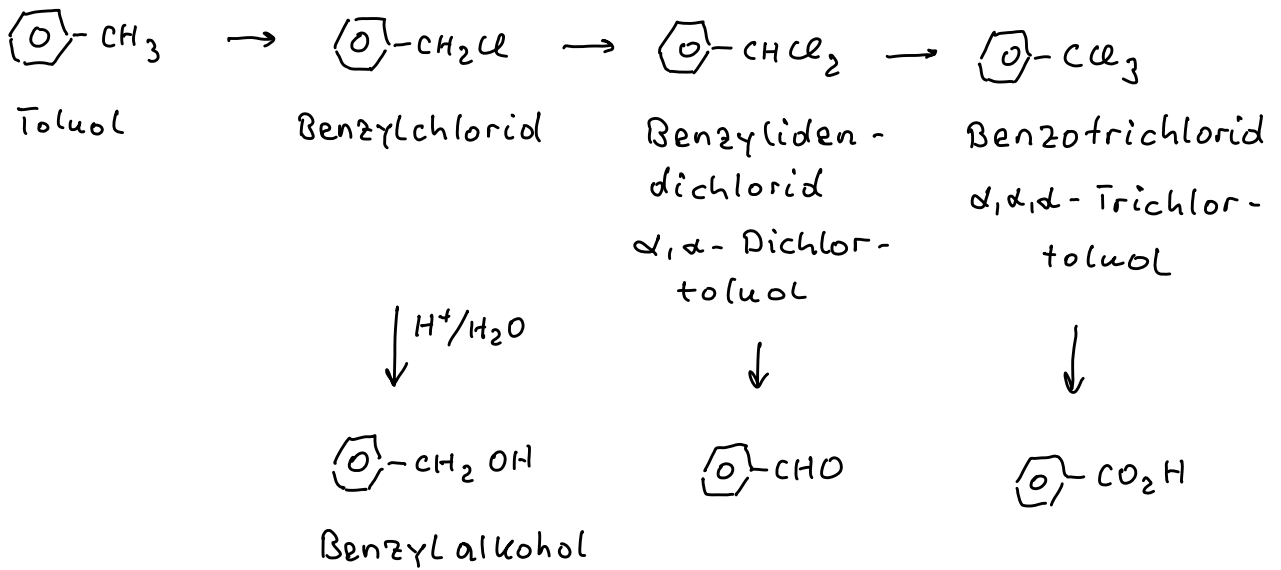 CH3 → CH2Cl → CHCl2 → CCl3
Toluol
Benzylchlorid
Benzyliden-
dichlorid
α,α- Dichlor-
toluol
Benzotrichlorid
α,α,α- Trichlor-
toluol
H+/H2O
CH2OH
CHO
CO2H
Benzylalkohol